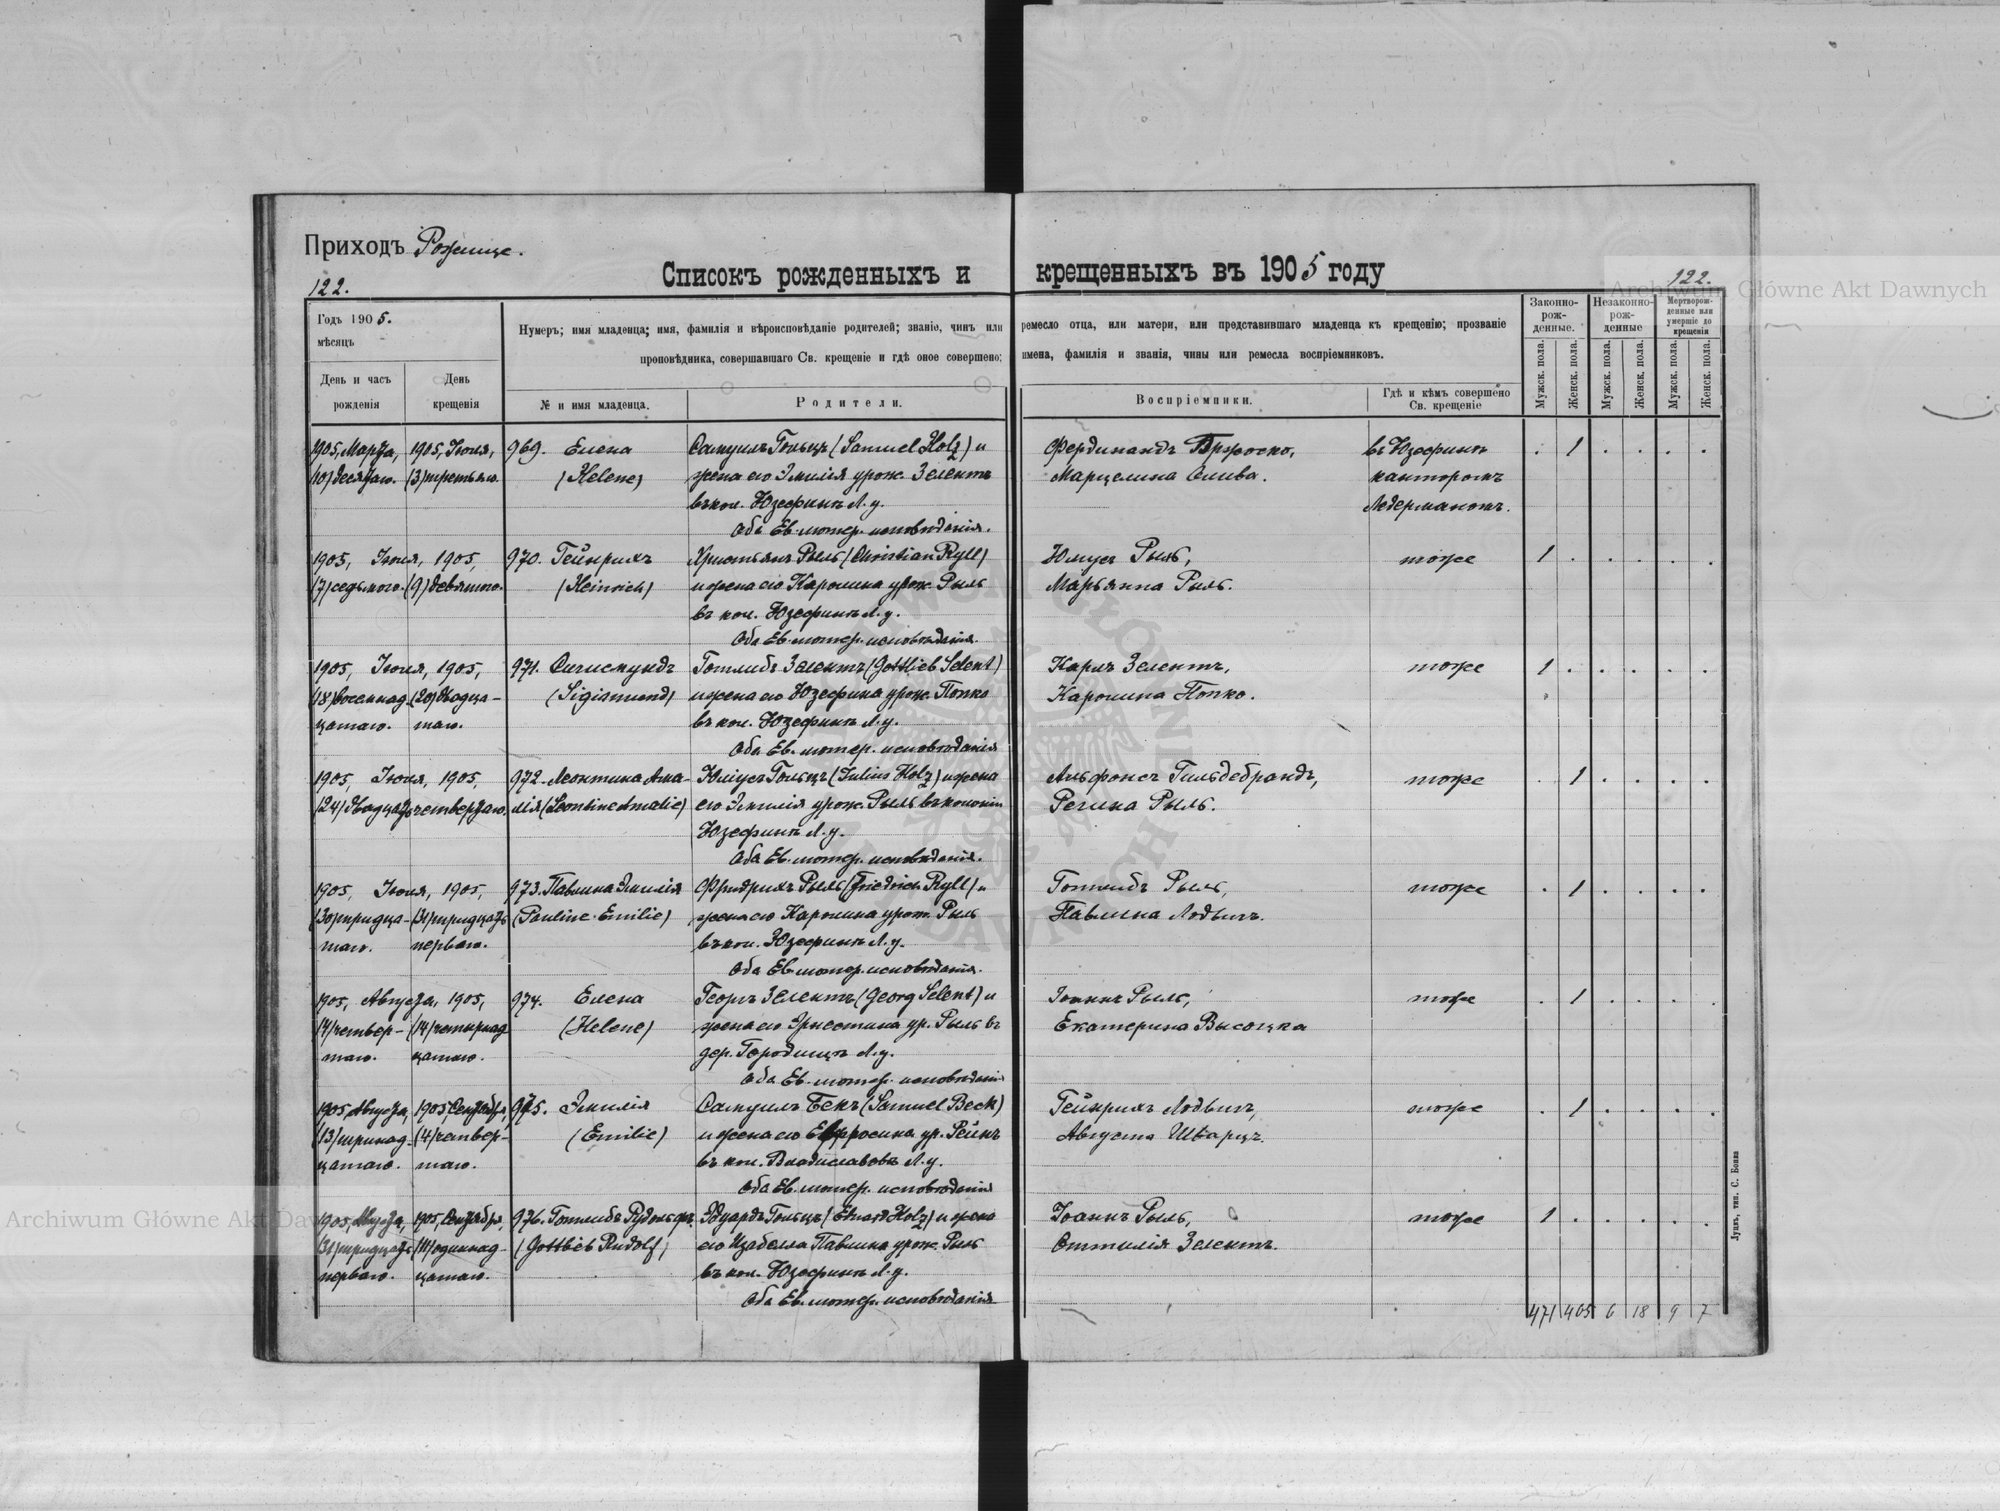 Приходъ Рожище.
Списокъ рожденныхъ и крещенныхъ въ 1905 году
122.
122.
Archiwum Główne Akt Dawnych
Годъ 1905.
мѣсяцъ
Нумеръ; имя младенца; имя, фамилія и вѣроисповѣданіе родителей; званіе, чинъ или ремесло отца, или матери, или представившаго младенца къ крещенію; прозваніе
проповѣдника, совершавшаго Св. крещеніе и гдѣ оное совершено; имена, фамилія и званія, чины или ремесла воспріемниковъ.
Законно-рож-денные.
Незаконно-рож-денные
Мертворож-денные или умершіе до крещенія
День и часъ рожденія
День крещенія
№ и имя младенца.
Родители.
Воспріемники.
Гдѣ и кѣмъ совершено Св. крещеніе
Мужск. пола.
Женск. пола.
Мужск. пола.
Женск. пола.
Мужск. пола.
Женск. пола.
1905, Марта, 1905, Іюля, 969. Елена Самуилъ Гольцъ (Samuel Holz) и Фердинандъ Бржоско, въ Юзефинѣ . 1 . . . .
(10) десятаго. (3) третьяго. (Helene) жена его Эмилія урож. Зелентъ Марцелина Слива. канторомъ
въ кол. Юзефинѣ Л. у. Ледерманомъ.
Оба Ев. лютер. исповѣданія.
1905, Іюля, 1905, 970. Гейнрихъ Христьянъ Рыль (Christian Ryll) Юлиусъ Рыль, тоже 1 . . . . .
(7) седьмого. (9) девятаго. (Heinrich) и жена его Каролина урож. Рыль Марьянна Рыль.
въ кол. Юзефинѣ Л. у.
Оба Ев. лютер. исповѣданія.
1905, Іюля, 1905, 971. Сигисмундъ Готлибъ Зелентъ (Gottlieb Selent) Карлъ Зелентъ, тоже 1 . . . . .
(18) восемнад- (20) двадца- (Sigismund) и жена его Юзефина урож. Попко Каролина Попко.
цатаго. таго. въ кол. Юзефинѣ Л. у.
Оба Ев. лютер. исповѣданія
1905, Іюля, 1905, 972. Леонтина Ама- Юліусъ Гольцъ (Julius Holz) и жена Альфонсъ Гильдебрандъ, тоже . 1 . . . .
(24) двадцать четвертаго. лія (Leontine Amalie) его Эмилія урож. Рыль въ колоніи Регина Рыль.
Юзефинѣ Л. у.
Оба Ев. лютер. исповѣданія.
1905, Іюля, 1905, 973. Павлина Эмилія Фридрихъ Рыль (Friedrich Ryll) и Готлибъ Рыль, тоже . 1 . . . .
(30) тридца- (31) тридцать (Pauline Emilie) жена его Каролина урож. Рыль Павлина Лодвигъ.
таго. перваго. въ кол. Юзефинѣ Л. у.
Оба Ев. лютер. исповѣданія.
1905, Августа, 1905, 974. Елена Георгъ Зелентъ (Georg Selent) и Іоаннъ Рыль, тоже . 1 . . . .
(4) четвер- (14) четырнад- (Helene) жена его Эрнестина ур. Рыль въ Екатерина Высоцка
таго. цатаго. дер. Городищѣ Л. у.
Оба Ев. лютер. исповѣданія
1905, Августа, 1905, Сентября, 975. Эмилія Самуилъ Бекъ (Samuel Beck) Гейнрихъ Лодвигъ, тоже . 1 . . . .
(13) тринад- (4) четвер- (Emilie) и жена его Ефросина ур. Рейнъ Августа Шварцъ.
цатаго. таго. въ кол. Владиславовѣ Л. у.
Оба Ев. лютер. исповѣданія
1905, Августа, 1905, Сентября, 976. Готлибъ Рудольфъ. Эдуардъ Гольцъ (Eduard Holz) и жена Іоаннъ Рыль, тоже 1 . . . . .
(31) тридцать (11) одиннад- (Gottlieb Rudolf) его Изабелла Павлина урож. Рыль Оттилія Зелентъ.
перваго. цатаго. въ кол. Юзефинѣ Л. у.
Оба Ев. лютер. исповѣданія
471 405 6 18 9 7
Луцкъ, тип. С. Бонка
Archiwum Główne Akt Dawnych